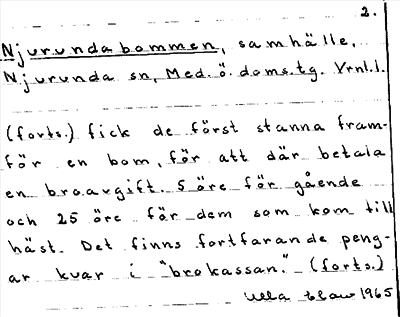 2.
Njurundabommen, samhälle,
Njurunda sn, Med. ö. doms.tg. Vrnl.l.
(forts.) fick de först stanna fram-
för en bom, för att där betala
en broavgift. 5 öre för gående
och 25 öre för dem som kom till
häst. Det finns fortfarande peng-
ar kvar i "brokassan." (forts.)
Ulla 1965